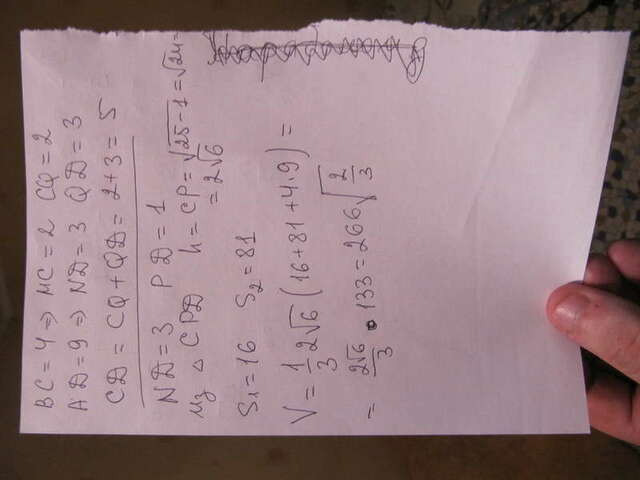 BC = 4 ⇒ MC = 2 CQ = 2
AD = 9 ⇒ ND = 3 QD = 3
CD = CQ + QD = 2 + 3 = 5
ND = 3 PD = 1
Из △ CPD h = CP = √25 - 1 = √24 =
= 2√6
S₁ = 16 S₂ = 81
V = 1/3 2√6 (16 + 81 + 4·9) =
= 2√6/3 · 133 = 266 √2/3